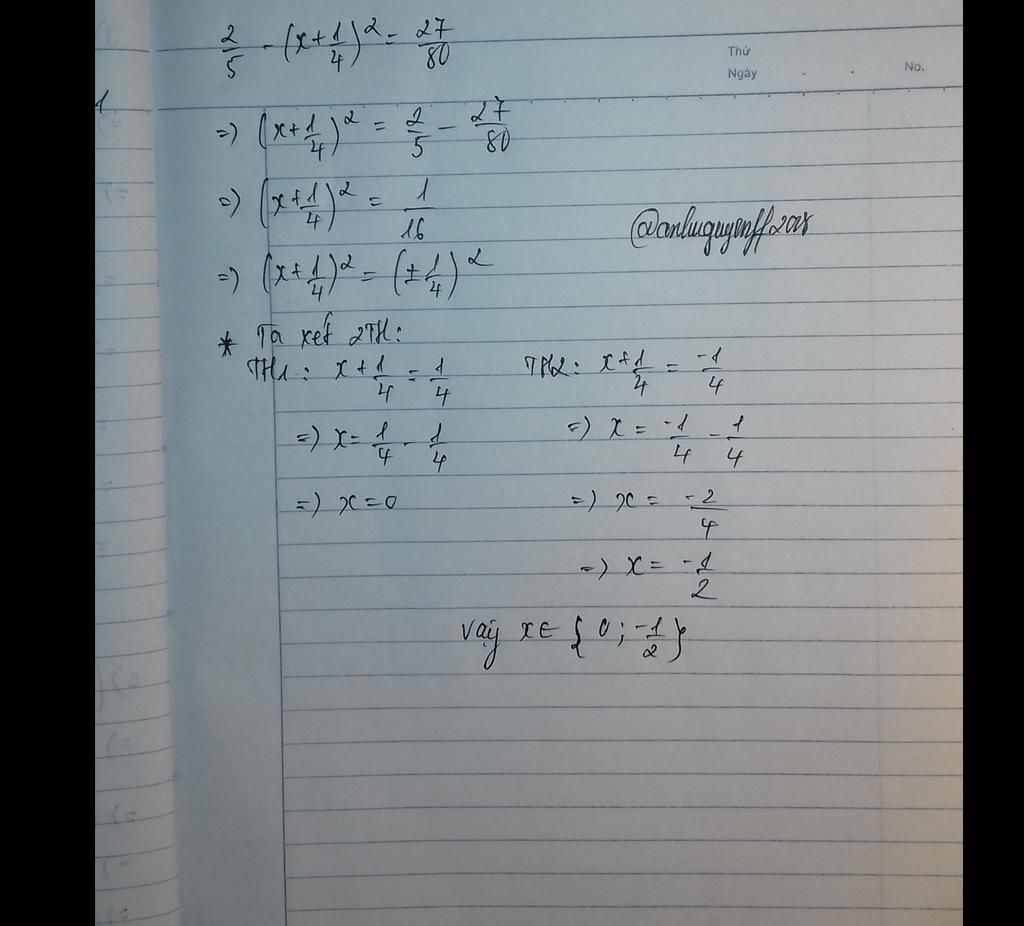 2/5 - (x+1/4)^2 = 27/80
Thứ
Ngày . . No.
1
=) (x+1/4)^2 = 2/5 - 27/80
=) (x+1/4)^2 = 1/16
@anhuquyenff2008
=) (x+1/4)^2 = (±1/4)^2
* Ta xét 2TH:
TH1: x+1/4 = 1/4 TH2: x+1/4 = -1/4
=) x= 1/4 - 1/4 =) x = -1/4 - 1/4
=) x=0 =) x = -2/4
=) x = -1/2
Vậy x∈ {0; -1/2}